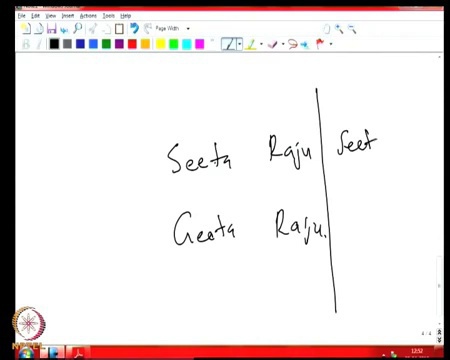 File Edit View Insert Actions Tools Help
Page Width
Seeta Raju Seet
Geeta Raju.
12:52